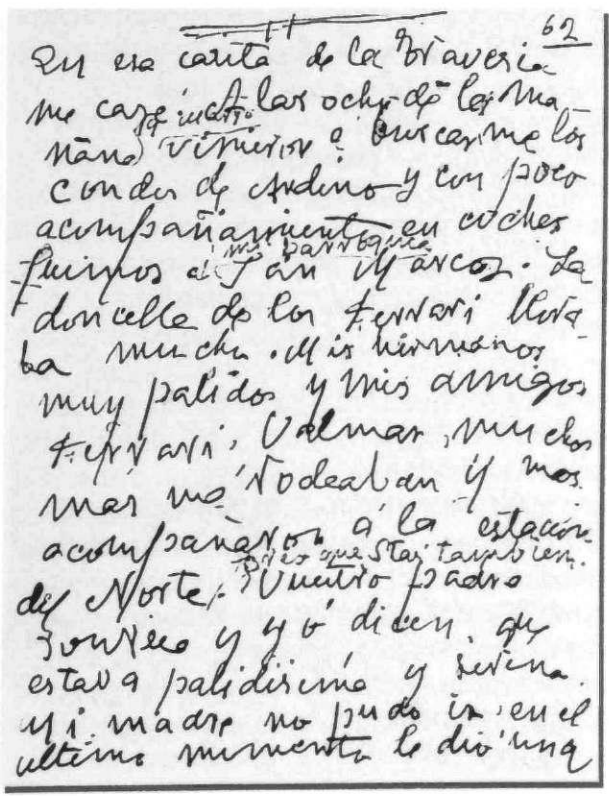 62
En esa casita de la Traversia
me casé. A las ocho de la ma-
ñana vinieron a buscarme los
condes de Andino y con poco
acompañamiento en coches
mi parroquia
fuimos a San Marcos. La
doncella de los Ferrari llora-
ba mucho. Mis hermanos
muy palidos y mis amigos
Ferrari, Valmar, muchos
mas me rodeaban y nos
acompañaron á la estación
creo que Stas tambien.
del Norte. Vuestro padre
sonrreia y yó dicen, que
estava palidisima y serena.
Mi madre no pudo ir, en el
ultimo momento le dió una